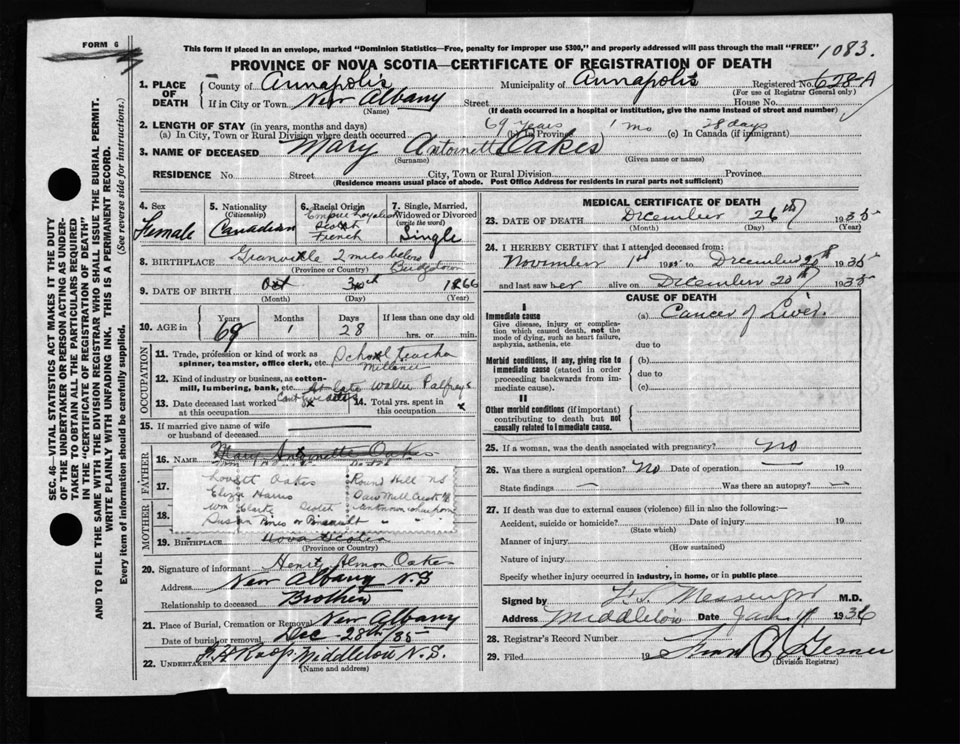 FORM 6
This form if placed in an envelope, marked "Dominion Statistics—Free, penalty for improper use $300," and properly addressed will pass through the mail "FREE"
1083.
PROVINCE OF NOVA SCOTIA—CERTIFICATE OF REGISTRATION OF DEATH
1. PLACE OF DEATH
County of Annapolis Municipality of Annapolis Registered No. 628-A
(For use of Registrar General only)
If in City or Town New Albany Street House No.
(Name) (If death occurred in a hospital or institution, give the name instead of street and number)
2. LENGTH OF STAY (in years, months and days) 69 years 1 mo 28 days
(a) In City, Town or Rural Division where death occurred (b) In Province (c) In Canada (if immigrant)
3. NAME OF DECEASED Mary Antoinett Oakes
(Surname) (Given name or names)
RESIDENCE No. Street City, Town or Rural Division Province
(Residence means usual place of abode. Post Office Address for residents in rural parts not sufficient)
4. Sex
Female
5. Nationality
(Citizenship)
Canadian
6. Racial Origin
Empire Loyalist
Scotch
French
7. Single, Married, Widowed or Divorced
(write the word)
Single
8. BIRTHPLACE Granville 2 miles below Bridgetown
(Province or Country)
9. DATE OF BIRTH Oct 30th 1866
(Month) (Day) (Year)
10. AGE in
Years Months Days If less than one day old
69 1 28 hrs. or min.
OCCUPATION
11. Trade, profession or kind of work as spinner, teamster, office clerk, etc. School Teacher
12. Kind of industry or business, as cotton-mill, lumbering, bank, etc. At late Walter Palfreys
13. Date deceased last worked at this occupation
14. Total yrs. spent in this occupation x
15. If married give name of wife or husband of deceased —
FATHER
16. NAME Mary Antoinette Oakes
17.
Lovett Oakes Round Hill NS
Eliza Harris Saw Mill Creek
Wm Clarke Scotch
Susan
MOTHER
19. BIRTHPLACE Nova Scotia
(Province or Country)
20. Signature of informant Henry Almon Oakes
Address New Albany N.S
Relationship to deceased Brother
21. Place of Burial, Cremation or Removal New Albany
Date of burial or removal Dec 28th/35
22. UNDERTAKER Roop, Middleton N.S.
(Name and address)
MEDICAL CERTIFICATE OF DEATH
23. DATE OF DEATH December 26th 1935
(Month) (Day) (Year)
24. I HEREBY CERTIFY that I attended deceased from:
November 1st 193 to December 20th 1935
and last saw her alive on December 20th 1935
CAUSE OF DEATH
I
Immediate cause (a) Cancer of Liver.
Give disease, injury or complication which caused death, not the mode of dying, such as heart failure, asphyxia, asthenia, etc.
due to
Morbid conditions, if any, giving rise to immediate cause (stated in order proceeding backwards from immediate cause). (b)
due to
(c)
II
Other morbid conditions (if important) contributing to death but not causally related to immediate cause.
25. If a woman, was the death associated with pregnancy? no
26. Was there a surgical operation? No Date of operation — 19
State findings — Was there an autopsy? —
27. If death was due to external causes (violence) fill in also the following:
Accident, suicide or homicide? Date of injury 19
(State which)
Manner of injury
(How sustained)
Nature of injury
Specify whether injury occurred in industry, in home, or in public place
Signed by Messenger M.D.
Address Middleton Date Jan 1936
28. Registrar's Record Number
29. Filed 19
(Division Registrar)
SEC. 46—VITAL STATISTICS ACT MAKES IT THE DUTY OF THE UNDERTAKER OR PERSON ACTING AS UNDERTAKER TO OBTAIN ALL THE PARTICULARS REQUIRED IN THE "CERTIFICATE OF REGISTRATION OF DEATH" AND TO FILE THE SAME WITH THE DIVISION REGISTRAR WHO SHALL ISSUE THE BURIAL PERMIT.
WRITE PLAINLY WITH UNFADING INK. THIS IS A PERMANENT RECORD.
Every item of information should be carefully supplied. (See reverse side for instructions.)